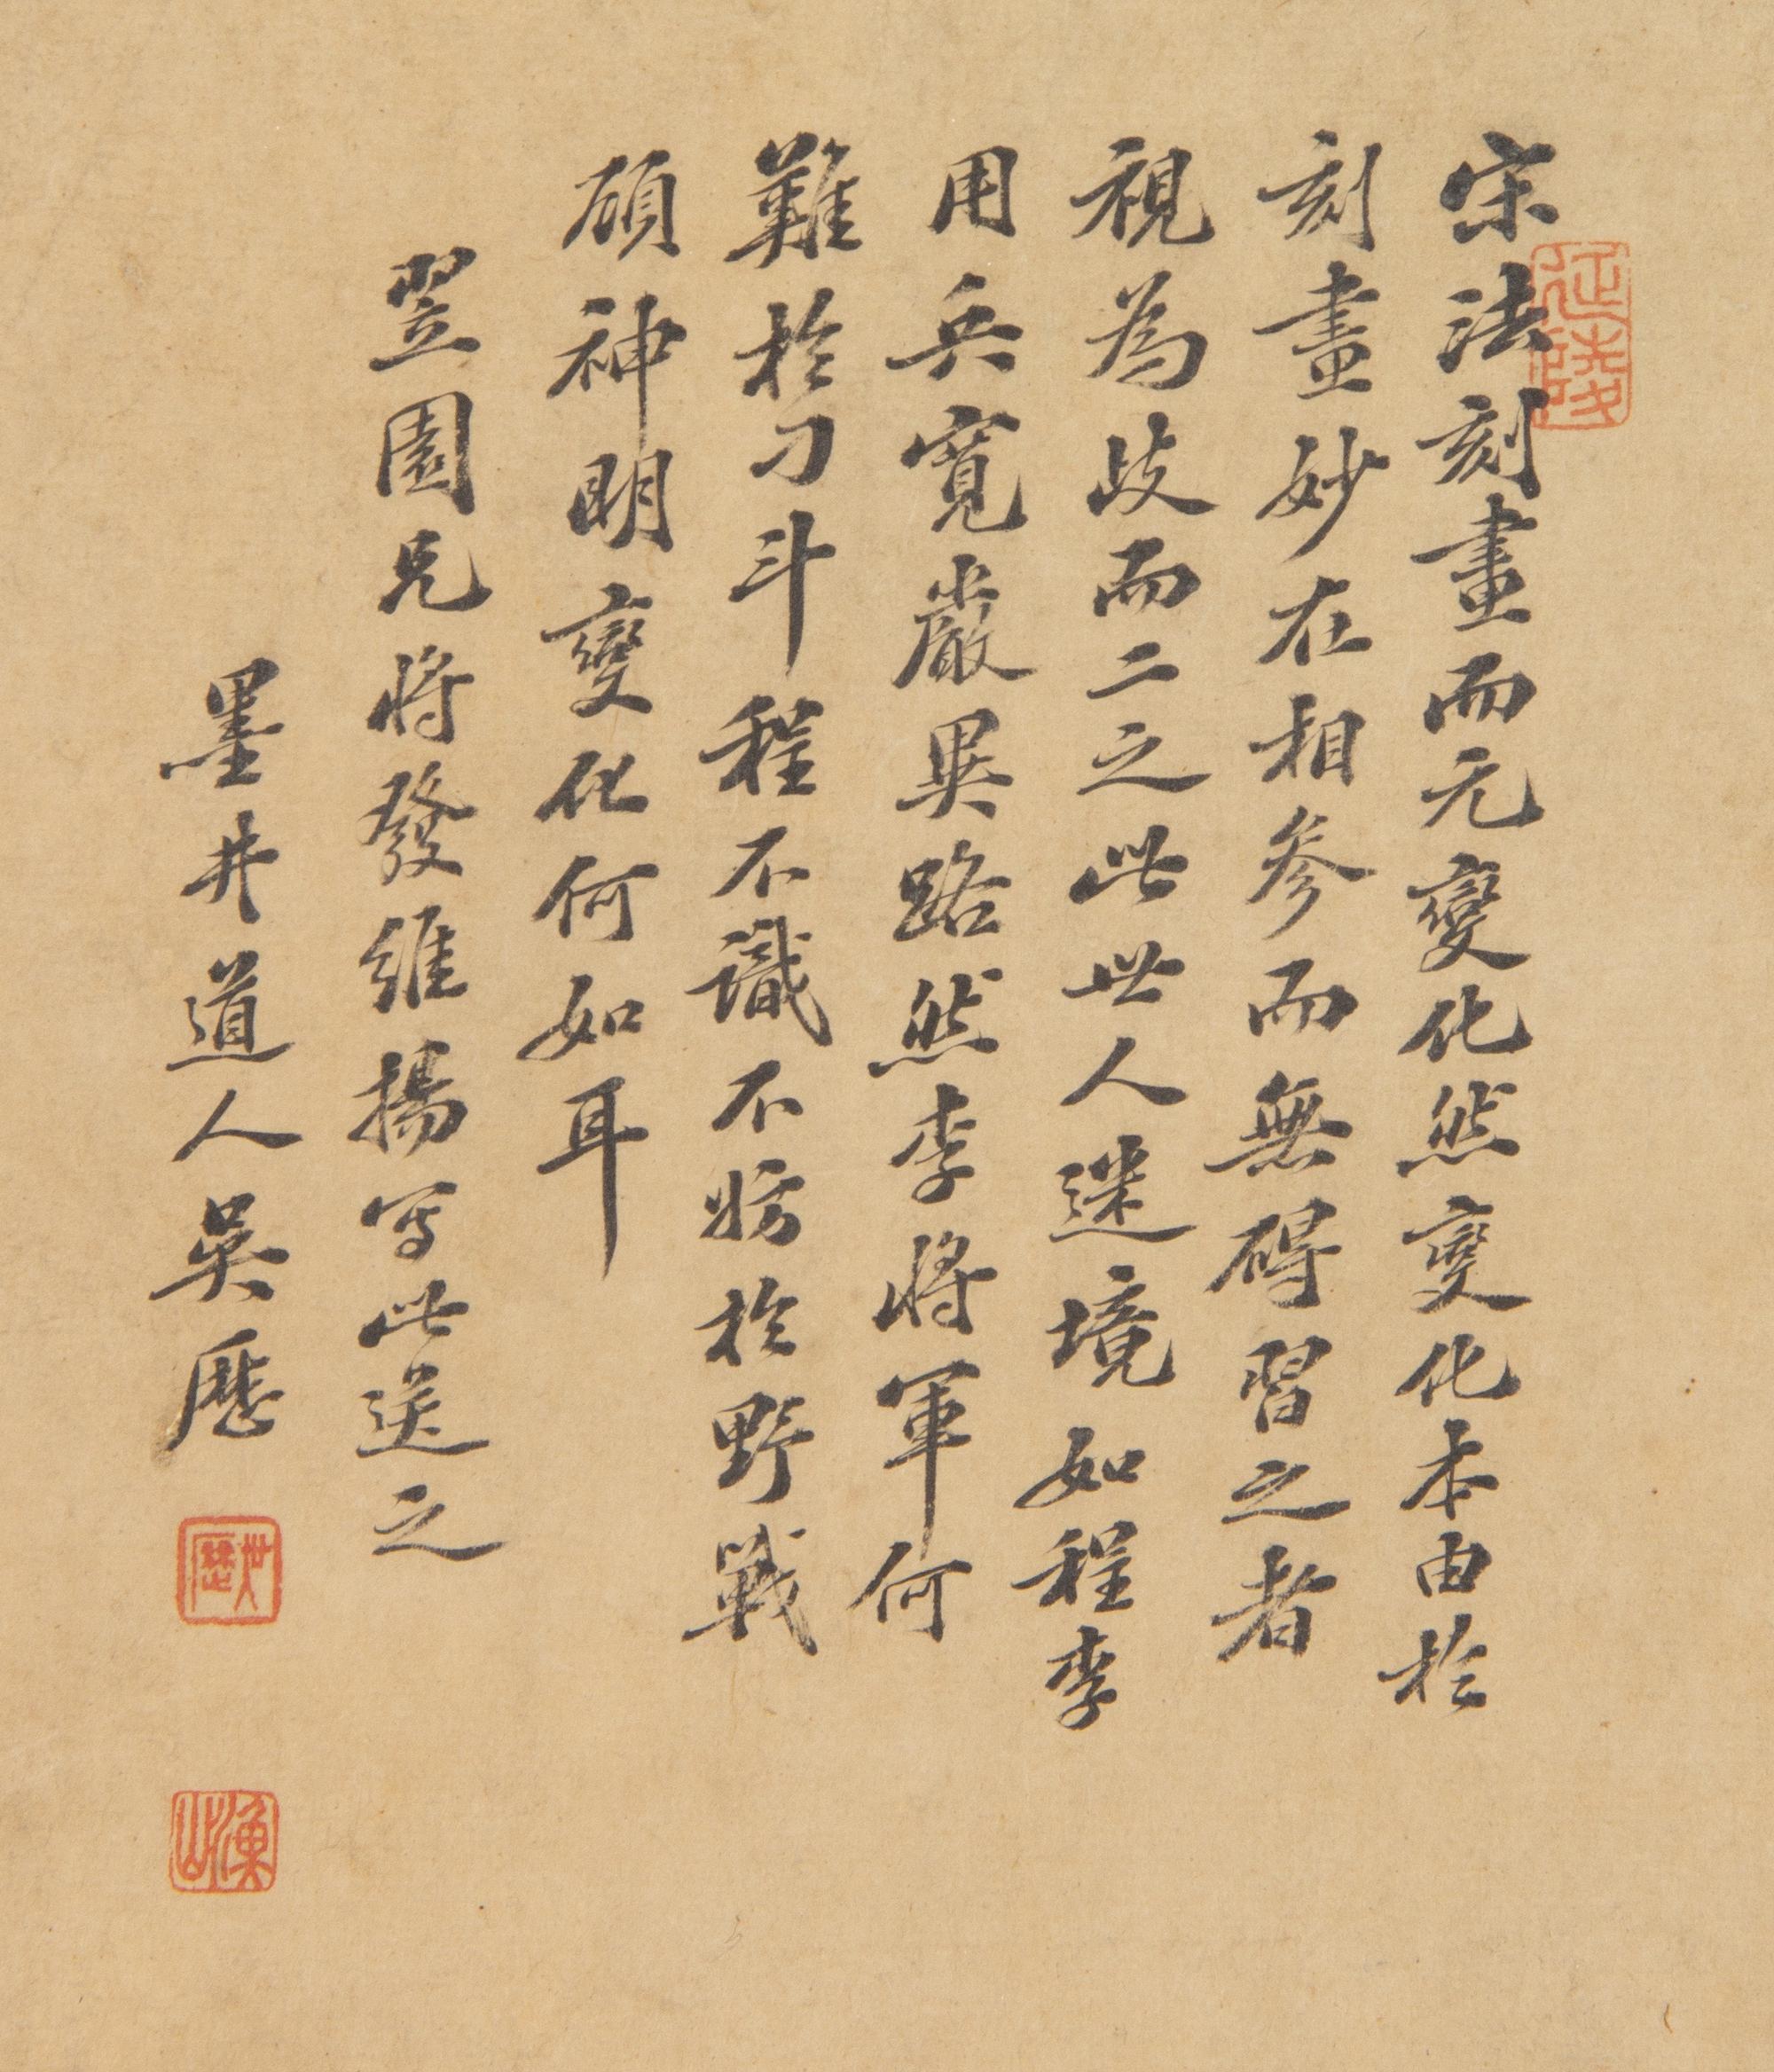 宋法刻畫而元變化然變化本由於
刻畫妙在相參而無碍習之者
視為歧而二之此世人迷境如程李
用兵寬嚴異路然李將軍何
難於刁斗程不識不妨於野戰
顧神明變化何如耳
翌園兄將發維揚寫此送之
墨井道人吳歷
延陵
漁山